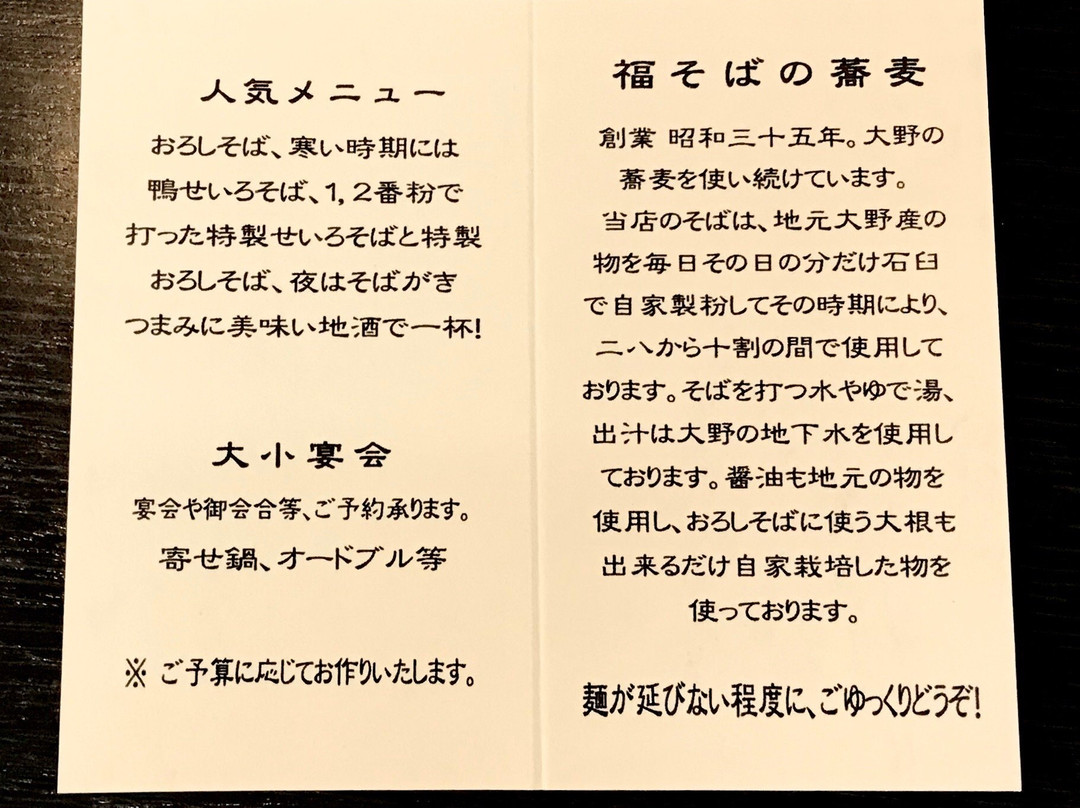 人気メニュー
おろしそば、寒い時期には
鴨せいろそば、1,2番粉で
打った特製せいろそばと特製
おろしそば、夜はそばがき
つまみに美味い地酒で一杯!
大小宴会
宴会や御会合等、ご予約承ります。
寄せ鍋、オードブル等
※ ご予算に応じてお作りいたします。
福そばの蕎麦
創業 昭和三十五年。大野の
蕎麦を使い続けています。
当店のそばは、地元大野産の
物を毎日その日の分だけ石臼
で自家製粉してその時期により、
二八から十割の間で使用して
おります。そばを打つ水やゆで湯、
出汁は大野の地下水を使用し
ております。醤油も地元の物を
使用し、おろしそばに使う大根も
出来るだけ自家栽培した物を
使っております。
麺が延びない程度に、ごゆっくりどうぞ!